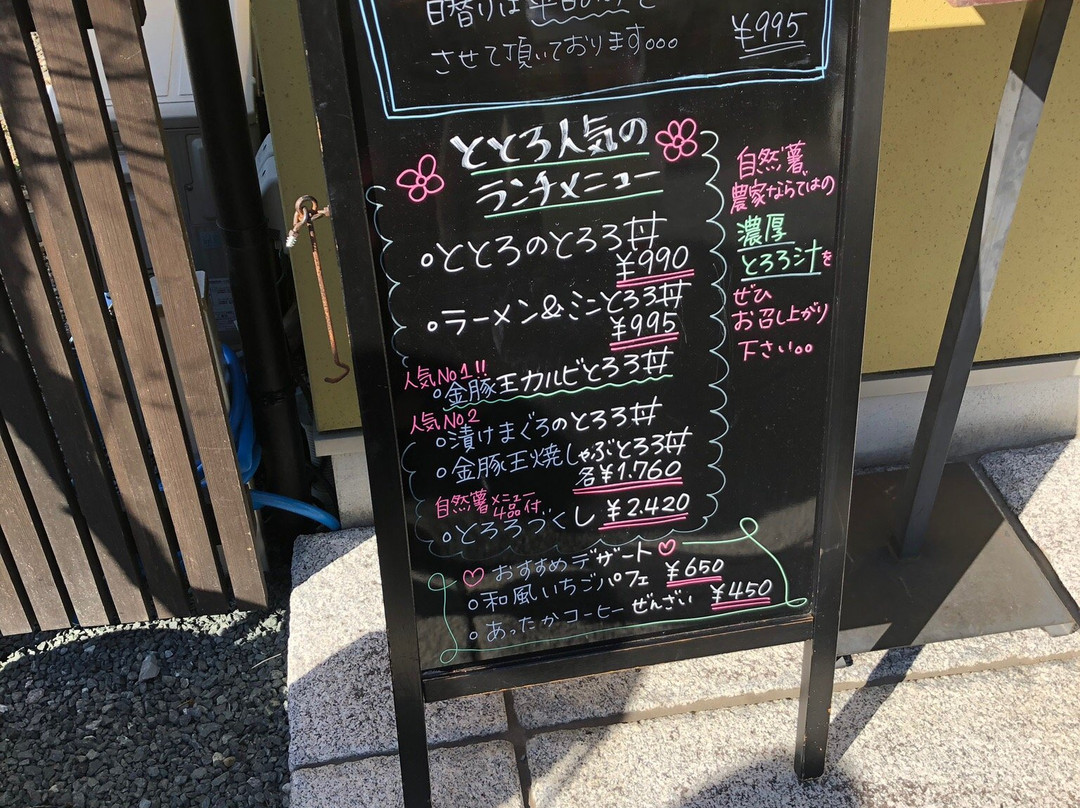 日替りは平日のみと
させて頂いております。。。
¥995
ととろ人気の
ランチメニュー
○ととろのとろろ丼
¥990
○ラーメン&ミニとろろ丼
¥995
人気No1!!
○金豚王カルビとろろ丼
人気No2
○漬けまぐろのとろろ丼
○金豚王焼しゃぶとろろ丼
各¥1.760
自然薯メニュー
4品付
○とろろづくし ¥2.420
♡おすすめデザート♡
○和風いちごパフェ ¥650
○あったかコーヒーぜんざい ¥450
自然薯
農家ならではの
濃厚
とろろ汁を
ぜひ
お召し上がり
下さい。。